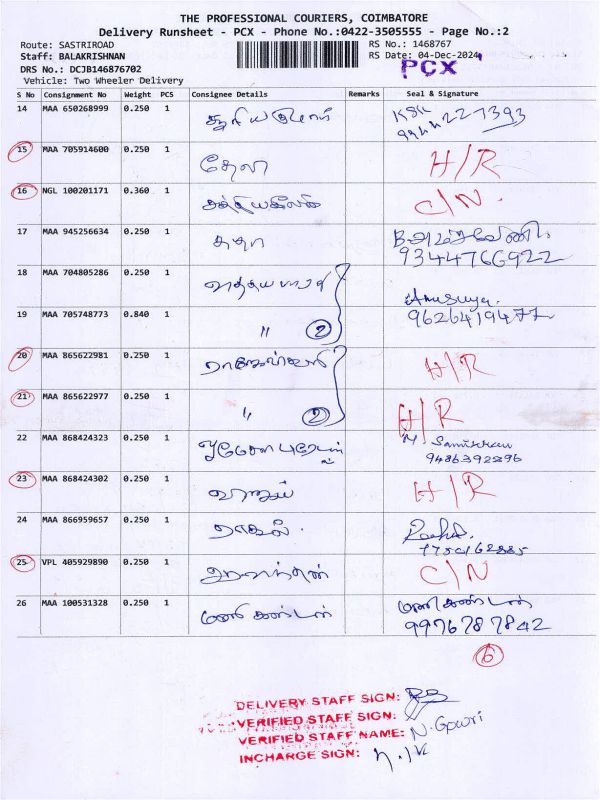 THE PROFESSIONAL COURIERS, COIMBATORE
Delivery Runsheet - PCX - Phone No.:0422-3505555 - Page No.:2
Route: SASTRIROAD
Staff: BALAKRISHNAN
DRS No.: DCJB146876702
Vehicle: Two Wheeler Delivery
RS No.: 1468767
RS Date: 04-Dec-2024
PCX
S No Consignment No Weight PCS Consignee Details Remarks Seal & Signature
14 MAA 650268999 0.250 1
15 MAA 705914600 0.250 1 H/R
16 NGL 100201171 0.360 1 C/N.
17 MAA 945256634 0.250 1 சுதா
9344766922
18 MAA 704805286 0.250 1
Anusuya.
19 MAA 705748773 0.840 1 " 2 9626419477
20 MAA 865622981 0.250 1 ராஜேஸ்வரி H/R
21 MAA 865622977 0.250 1 " 2 H/R
22 MAA 868424323 0.250 1
9486392296
23 MAA 868424302 0.250 1 H/R
24 MAA 866959657 0.250 1
25 VPL 405929890 0.250 1 அரவிந்தன் C/N
26 MAA 100531328 0.250 1 மணிகண்டன் மணிகண்டன்
9976787842
6
DELIVERY STAFF SIGN:
VERIFIED STAFF SIGN:
VERIFIED STAFF NAME: N. Gowri
INCHARGE SIGN: